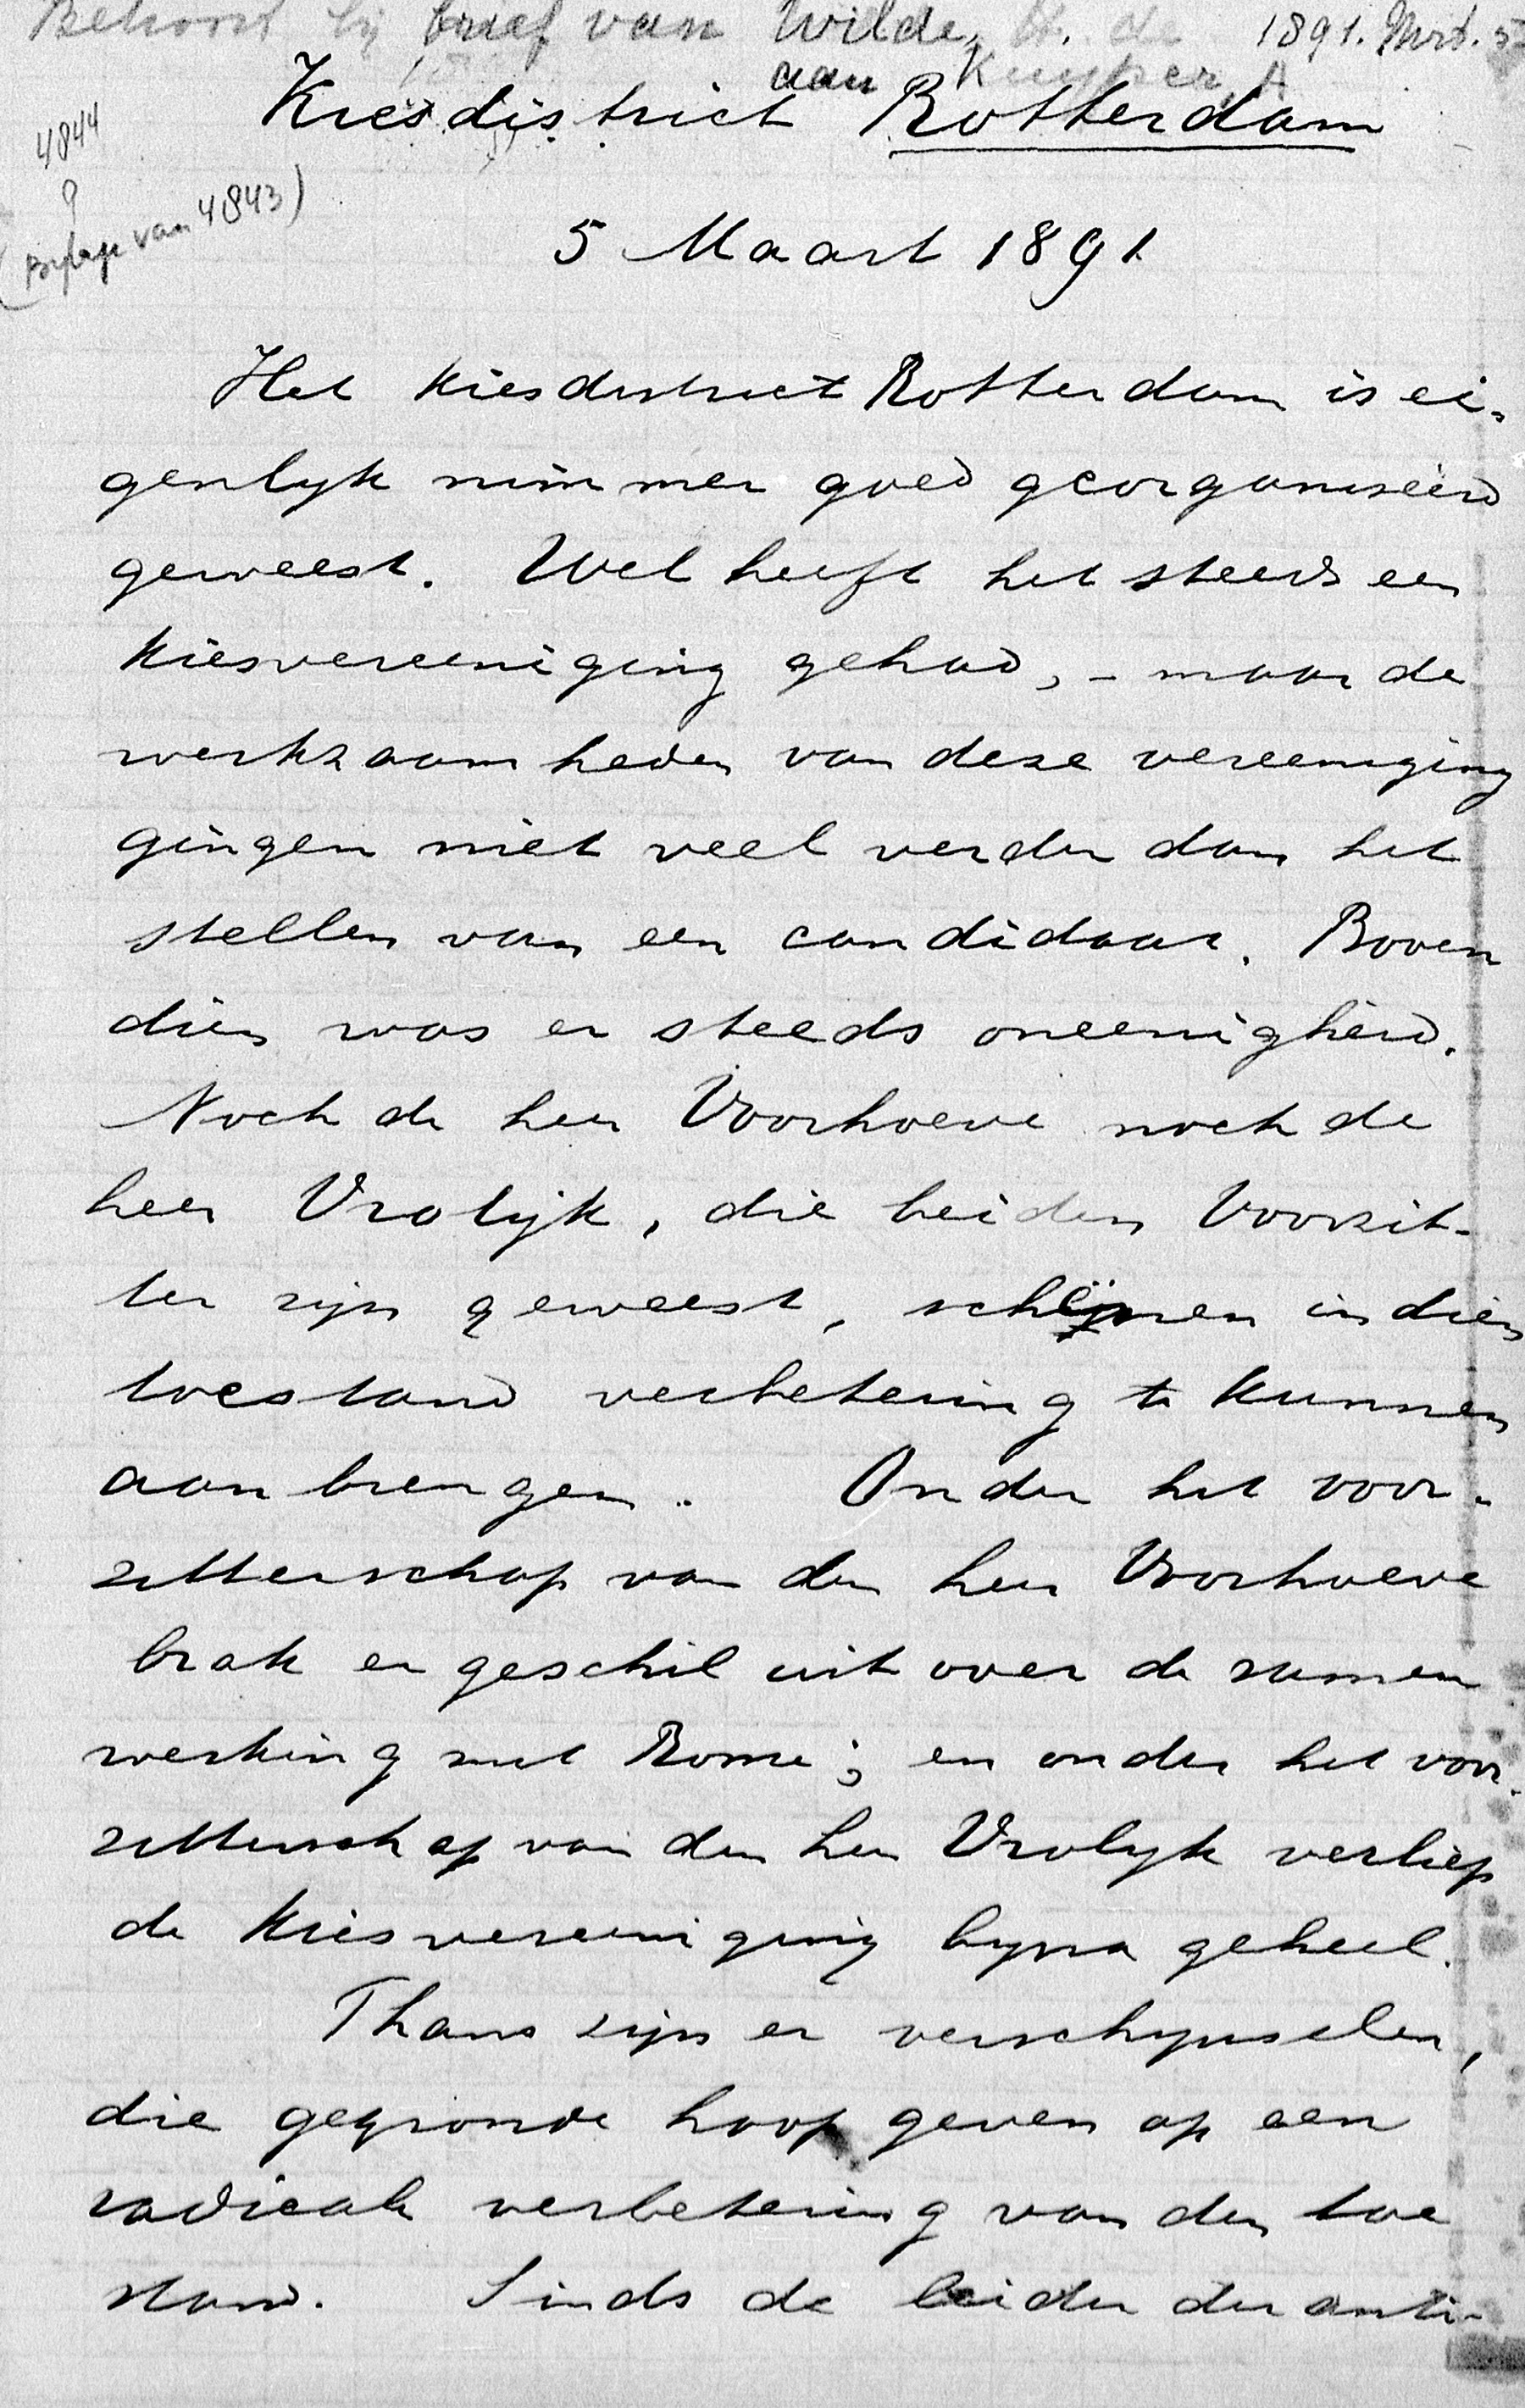 Behoort bij brief van Wilde, H. de 1891. Mrt. 5
aan Kuyper, A
Kiesdistrict Rotterdam
4844
(Bijlage van 4843)
5 Maart 1891
Het kiesdistrict Rotterdam is ei-
genlyk nimmer goed georganiseerd
geweest. Wel heeft het steeds een
kiesvereeniging gehad, - maar de
werkzaamheden van deze vereeniging
gingen niet veel verder dan het
stellen van een candidaat. Boven
dien was er steeds oneenigheid.
Noch de heer Voorhoeve noch de
heer Vrolijk, die beiden Voorzit-
ter zijn geweest, schijnen in dien
toestand verbetering te kunnen
aanbrengen. Onder het voor-
zitterschap van den heer Voorhoeve
brak er geschil uit over de samen
werking met Rome; en onder het voor-
zitterschap van den heer Vrolyk verliep
de Kiesvereeniging byna geheel.
Thans zijn er verschynselen,
die gegronde hoop geven op een
radicale verbetering van den toe
stand. Sinds de leider der anti-